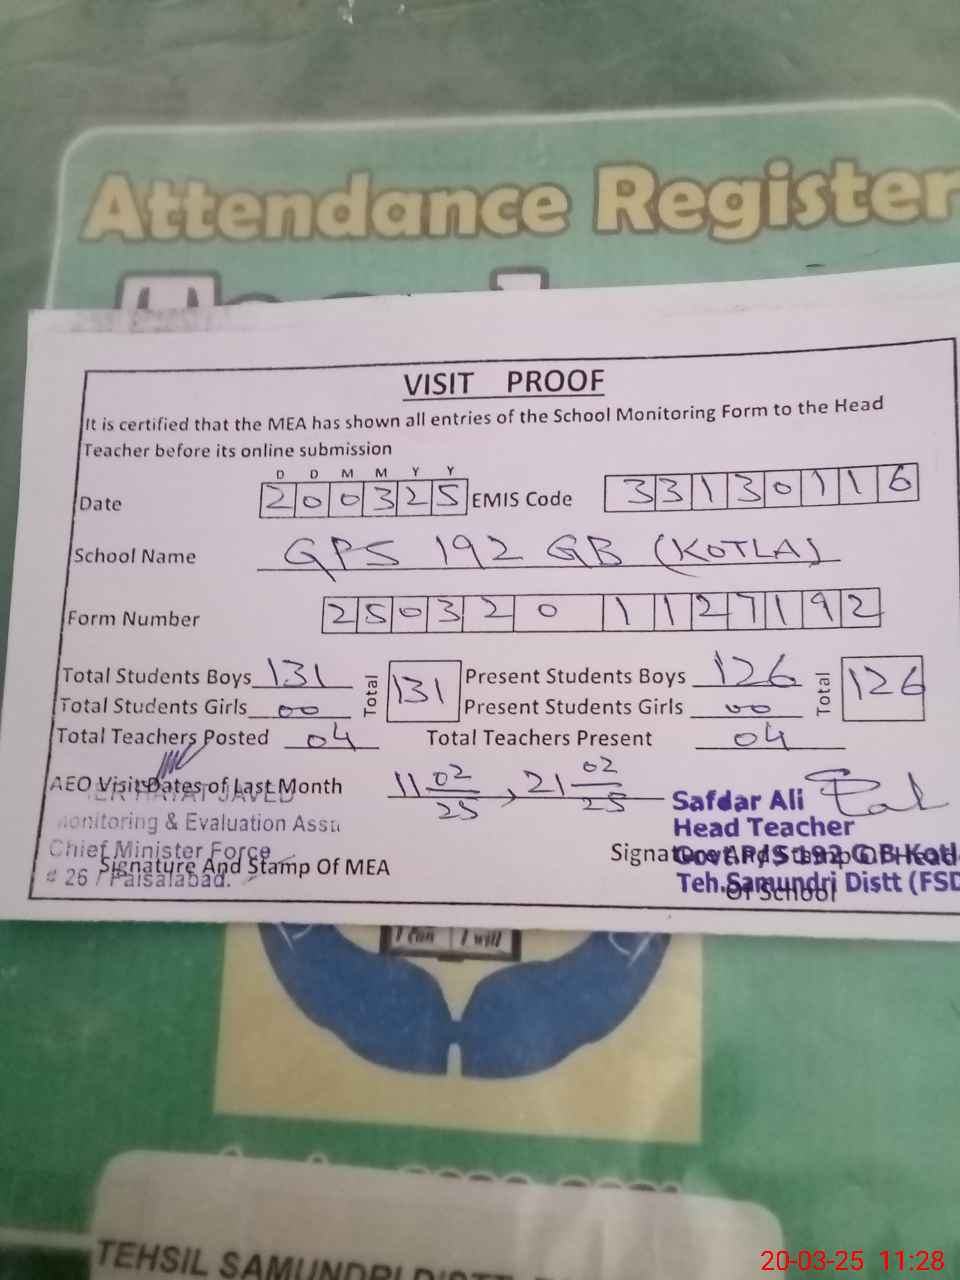 Attendance Register
VISIT PROOF
It is certified that the MEA has shown all entries of the School Monitoring Form to the Head
Teacher before its online submission
D D M M Y Y
Date 200325 EMIS Code 33130116
School Name GPS 192 GB (KOTLA)
Form Number 2503201127192
Total Students Boys 131 Total 131 Present Students Boys 126 Total 126
Total Students Girls 00 Present Students Girls 00
Total Teachers Posted 04 Total Teachers Present 04
AEO Visit Dates of Last Month 11 02/25, 21 02/25
HAYAT JAVED
onitoring & Evaluation Asst
Chief Minister Force
# 26 / Faisalabad.
Signature And Stamp Of MEA
Safdar Ali
Head Teacher
Govt P/S 192 G.B Kotl
Teh.Samundri Distt (FSD
Signature And Stamp Of Head
Of School
I can I will
TEHSIL SAMUNDRI DISTT
20-03-25 11:28